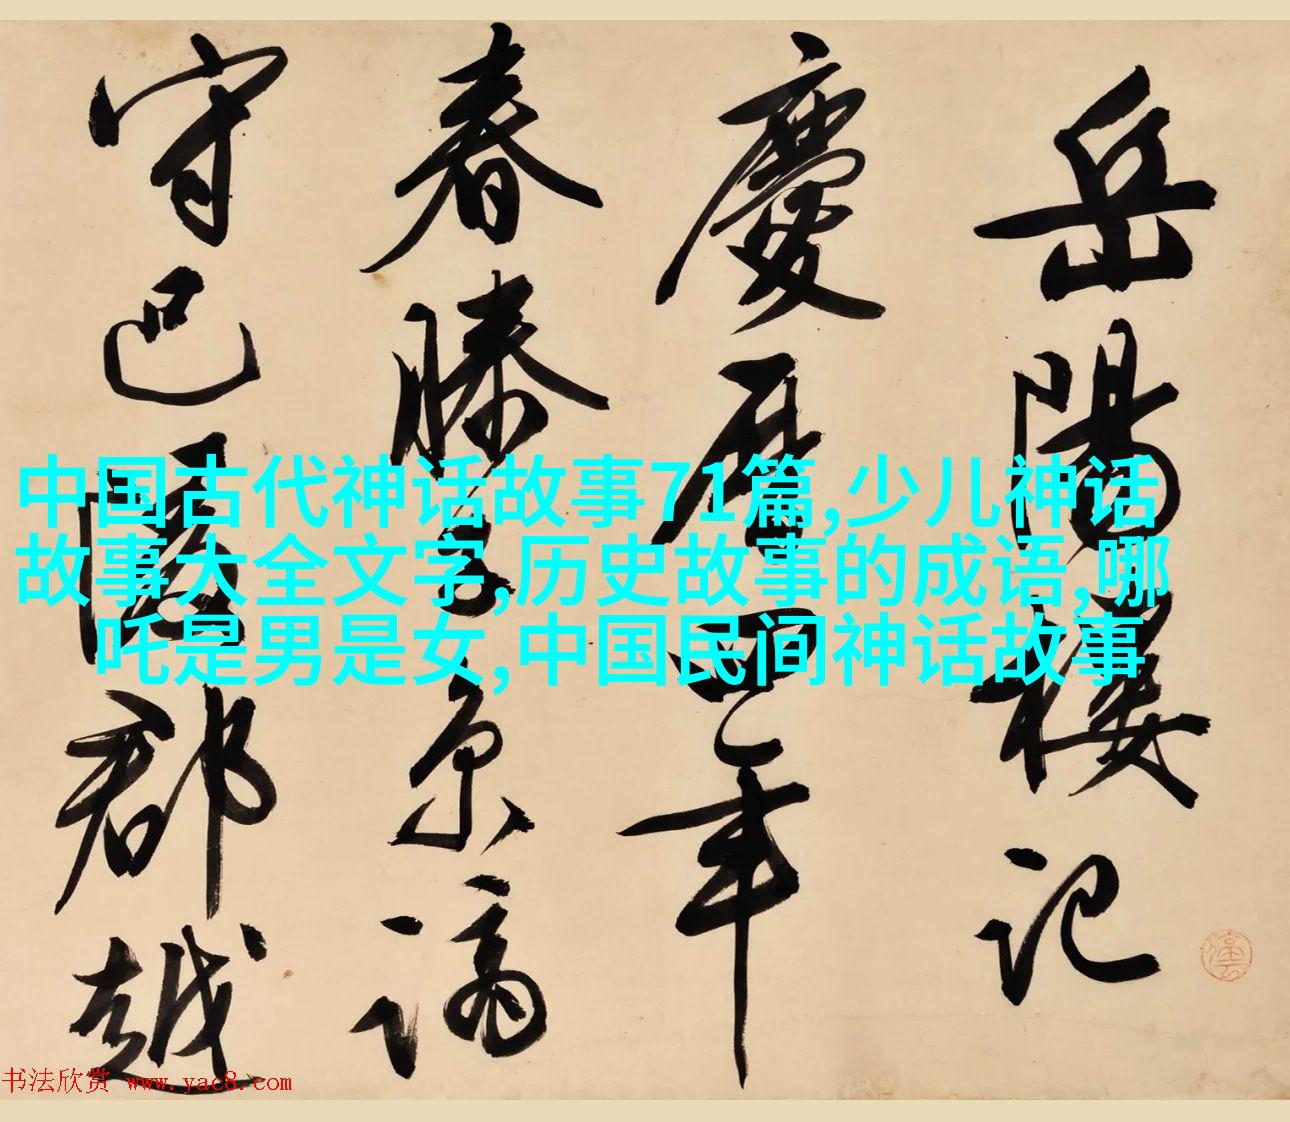 岳陽樓記
慶曆四年
春滕子京謫
守巴陵郡越
中国古代神话故事71篇,少儿神话
故事大全文字,历史故事的成语,哪
吒是男是女,中国民间神话故事
书法欣赏 www.yac8.com